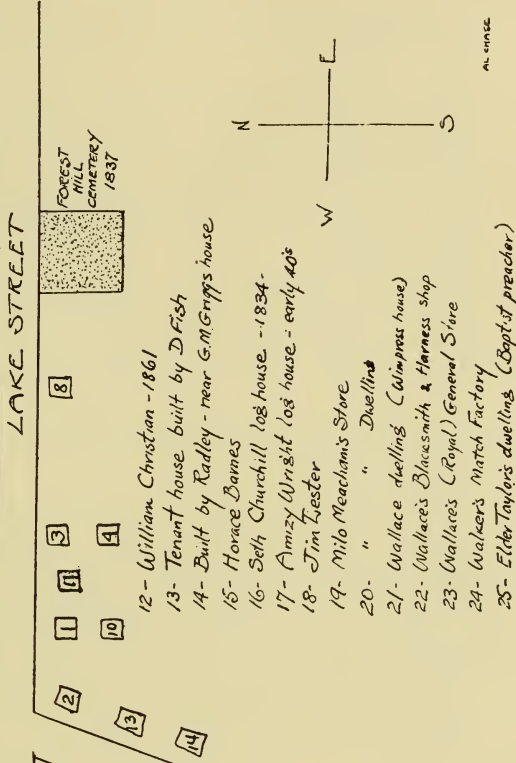 LAKE STREET
FOREST
HILL
CEMETERY
1837
2
1
3
8
10
4
14
N
W
E
S
12 - William Christian - 1861
13 - Tenant house built by D Fish
14 - Built by Radley - near G.M. Griggs house
15 - Horace Barnes
16 - Seth Churchill log house - 1834 -
17 - Amizy Wright log house - early 40's
18 - Jim
19 - Milo Meacham's Store
20 - " " Dwelling
21 - Wallace dwelling (Wimpress house)
22 - Wallace's Blacksmith & Harness shop
23 - Wallace's (Royal) General Store
24 - Walker's Match Factory
25 - Elder Taylor's dwelling (Baptist preacher)
AL CHASE